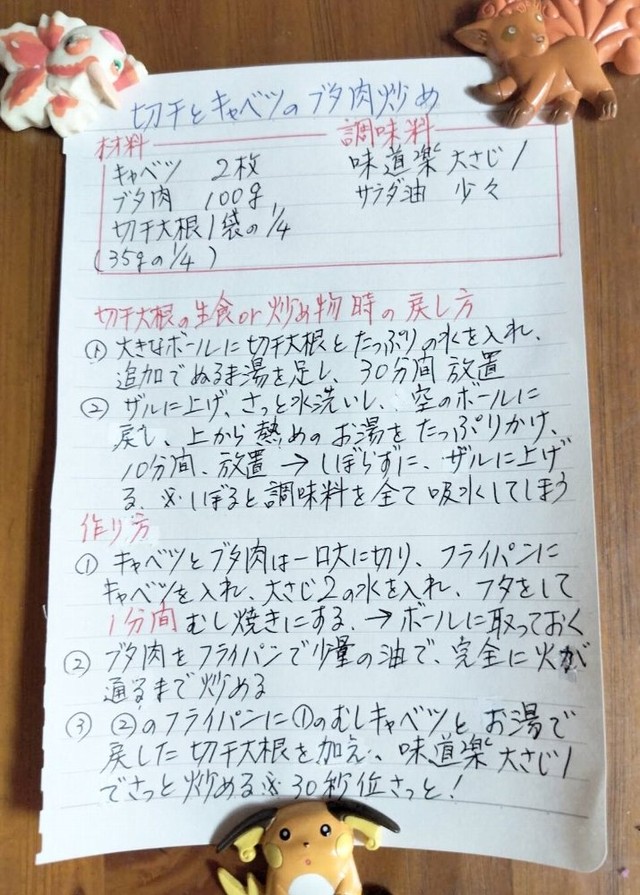 切干とキャベツのブタ肉炒め
材料 調味料
キャベツ 2枚 味道楽 大さじ1
ブタ肉 100g サラダ油 少々
切干大根1袋の1/4
(35gの1/4)
切干大根の生食or炒め物時の戻し方
① 大きなボールに切干大根とたっぷりの水を入れ、
追加でぬるま湯を足し、30分間放置
② ザルに上げ、さっと水洗いし、空のボールに
戻し、上から熱めのお湯をたっぷりかけ、
10分間、放置→しぼらずに、ザルに上げ
る、※しぼると調味料を全て吸水してしまう
作り方
① キャベツとブタ肉は一口大に切り、フライパンに
キャベツを入れ、大さじ2の水を入れ、フタをして
1分間むし焼きにする、→ボールに取っておく
② ブタ肉をフライパンで少量の油で、完全に火が
通るまで炒める
③ ②のフライパンに①のむしキャベツと お湯で
戻した切干大根を加え、味道楽大さじ1
でさっと炒める※30秒位さっと!